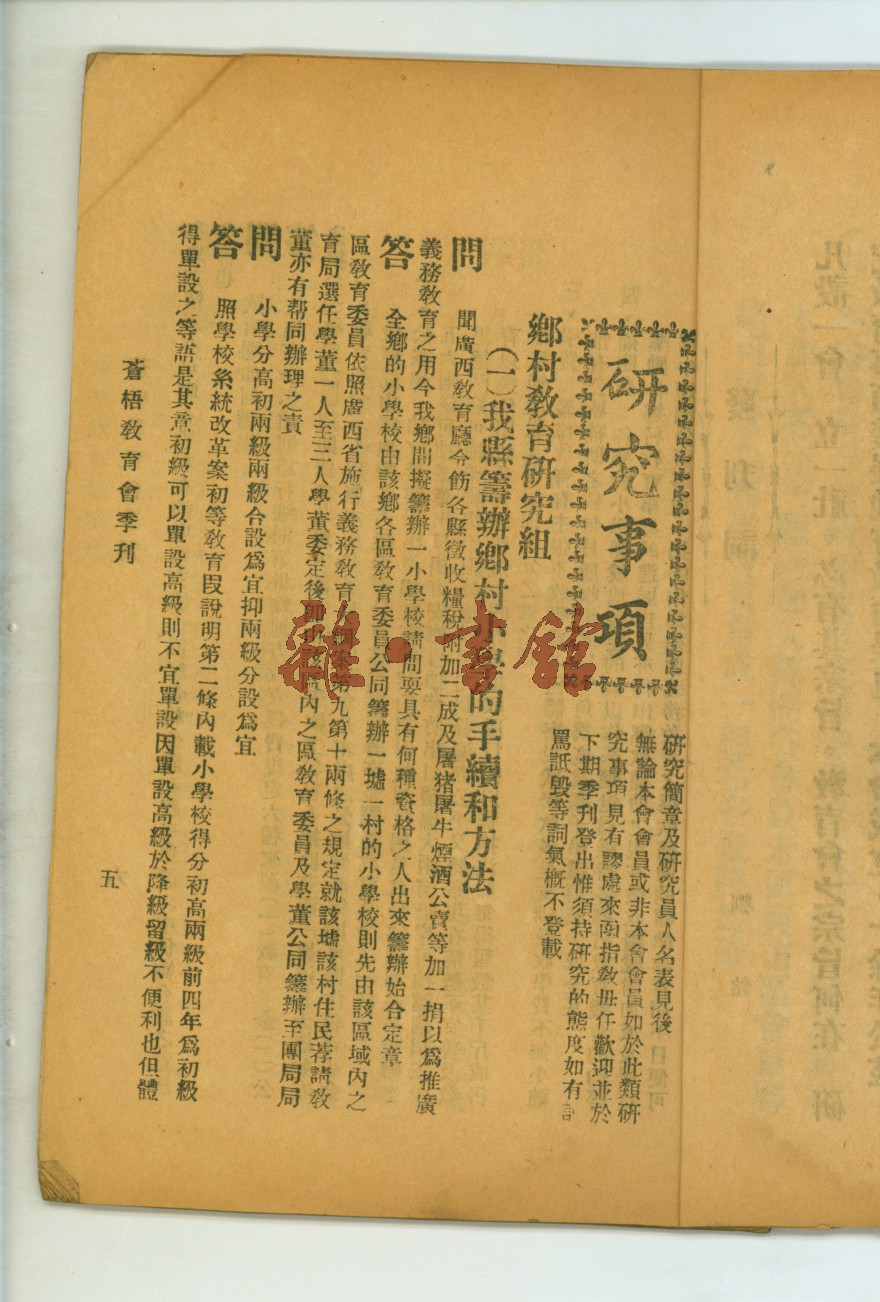 研究事項
研究簡章及研究員人名表見後
無論本會會員或非本會會員如於此類研
究事項見有謬處來函指敎毋任歡迎並於
下期季刊登出惟須持研究的態度如有
罵詆毀等詞氣概不登載
鄉村敎育研究組
(一)我縣籌辦鄉村小學的手續和方法
問 聞廣西敎育廳令飭各縣徵收糧稅附加二成及屠猪屠牛煙酒公賣等加一捐以爲推廣
義務敎育之用今我鄉間擬籌辦一小學校請問要具有何種資格之人出來籌辦始合定章
答 全鄉的小學校由該鄉各區敎育委員公同籌辦一墟一村的小學校則先由該區域內之
區敎育委員依照廣西省施行義務敎育 第九第十兩條之規定就該墟該村住民荐請敎
育局選任學董一人至三人學董委定後即 該區內之區敎育委員及學董公同籌辦至團局局
董亦有帮同辦理之責
問 小學分高初兩級兩級合設爲宜抑兩級分設爲宜
答 照學校系統改革案初等敎育段說明第二條內載小學校得分初高兩級前四年爲初級
得單設之等語是其意初級可以單設高級則不宜單設因單設高級於降級留級不便利也但體
蒼梧敎育會季刊
五
雜·書館